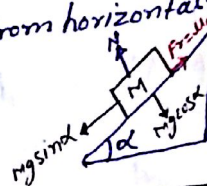 rom horizontal
N
Fr=μ
M
Mgsinα
Mgcosα
α